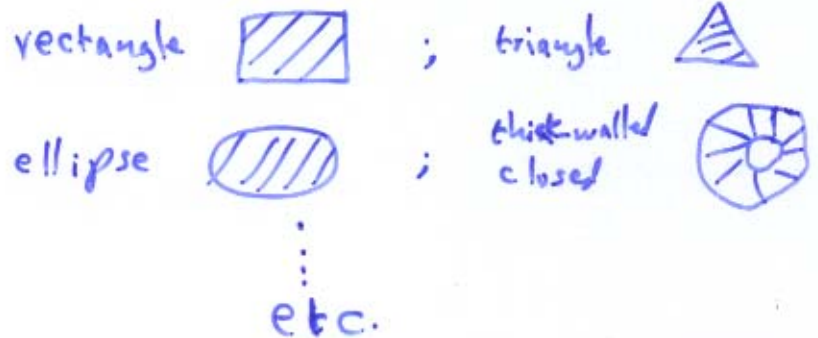 rectangle ; triangle
ellipse ; thick-walled
closed
etc.